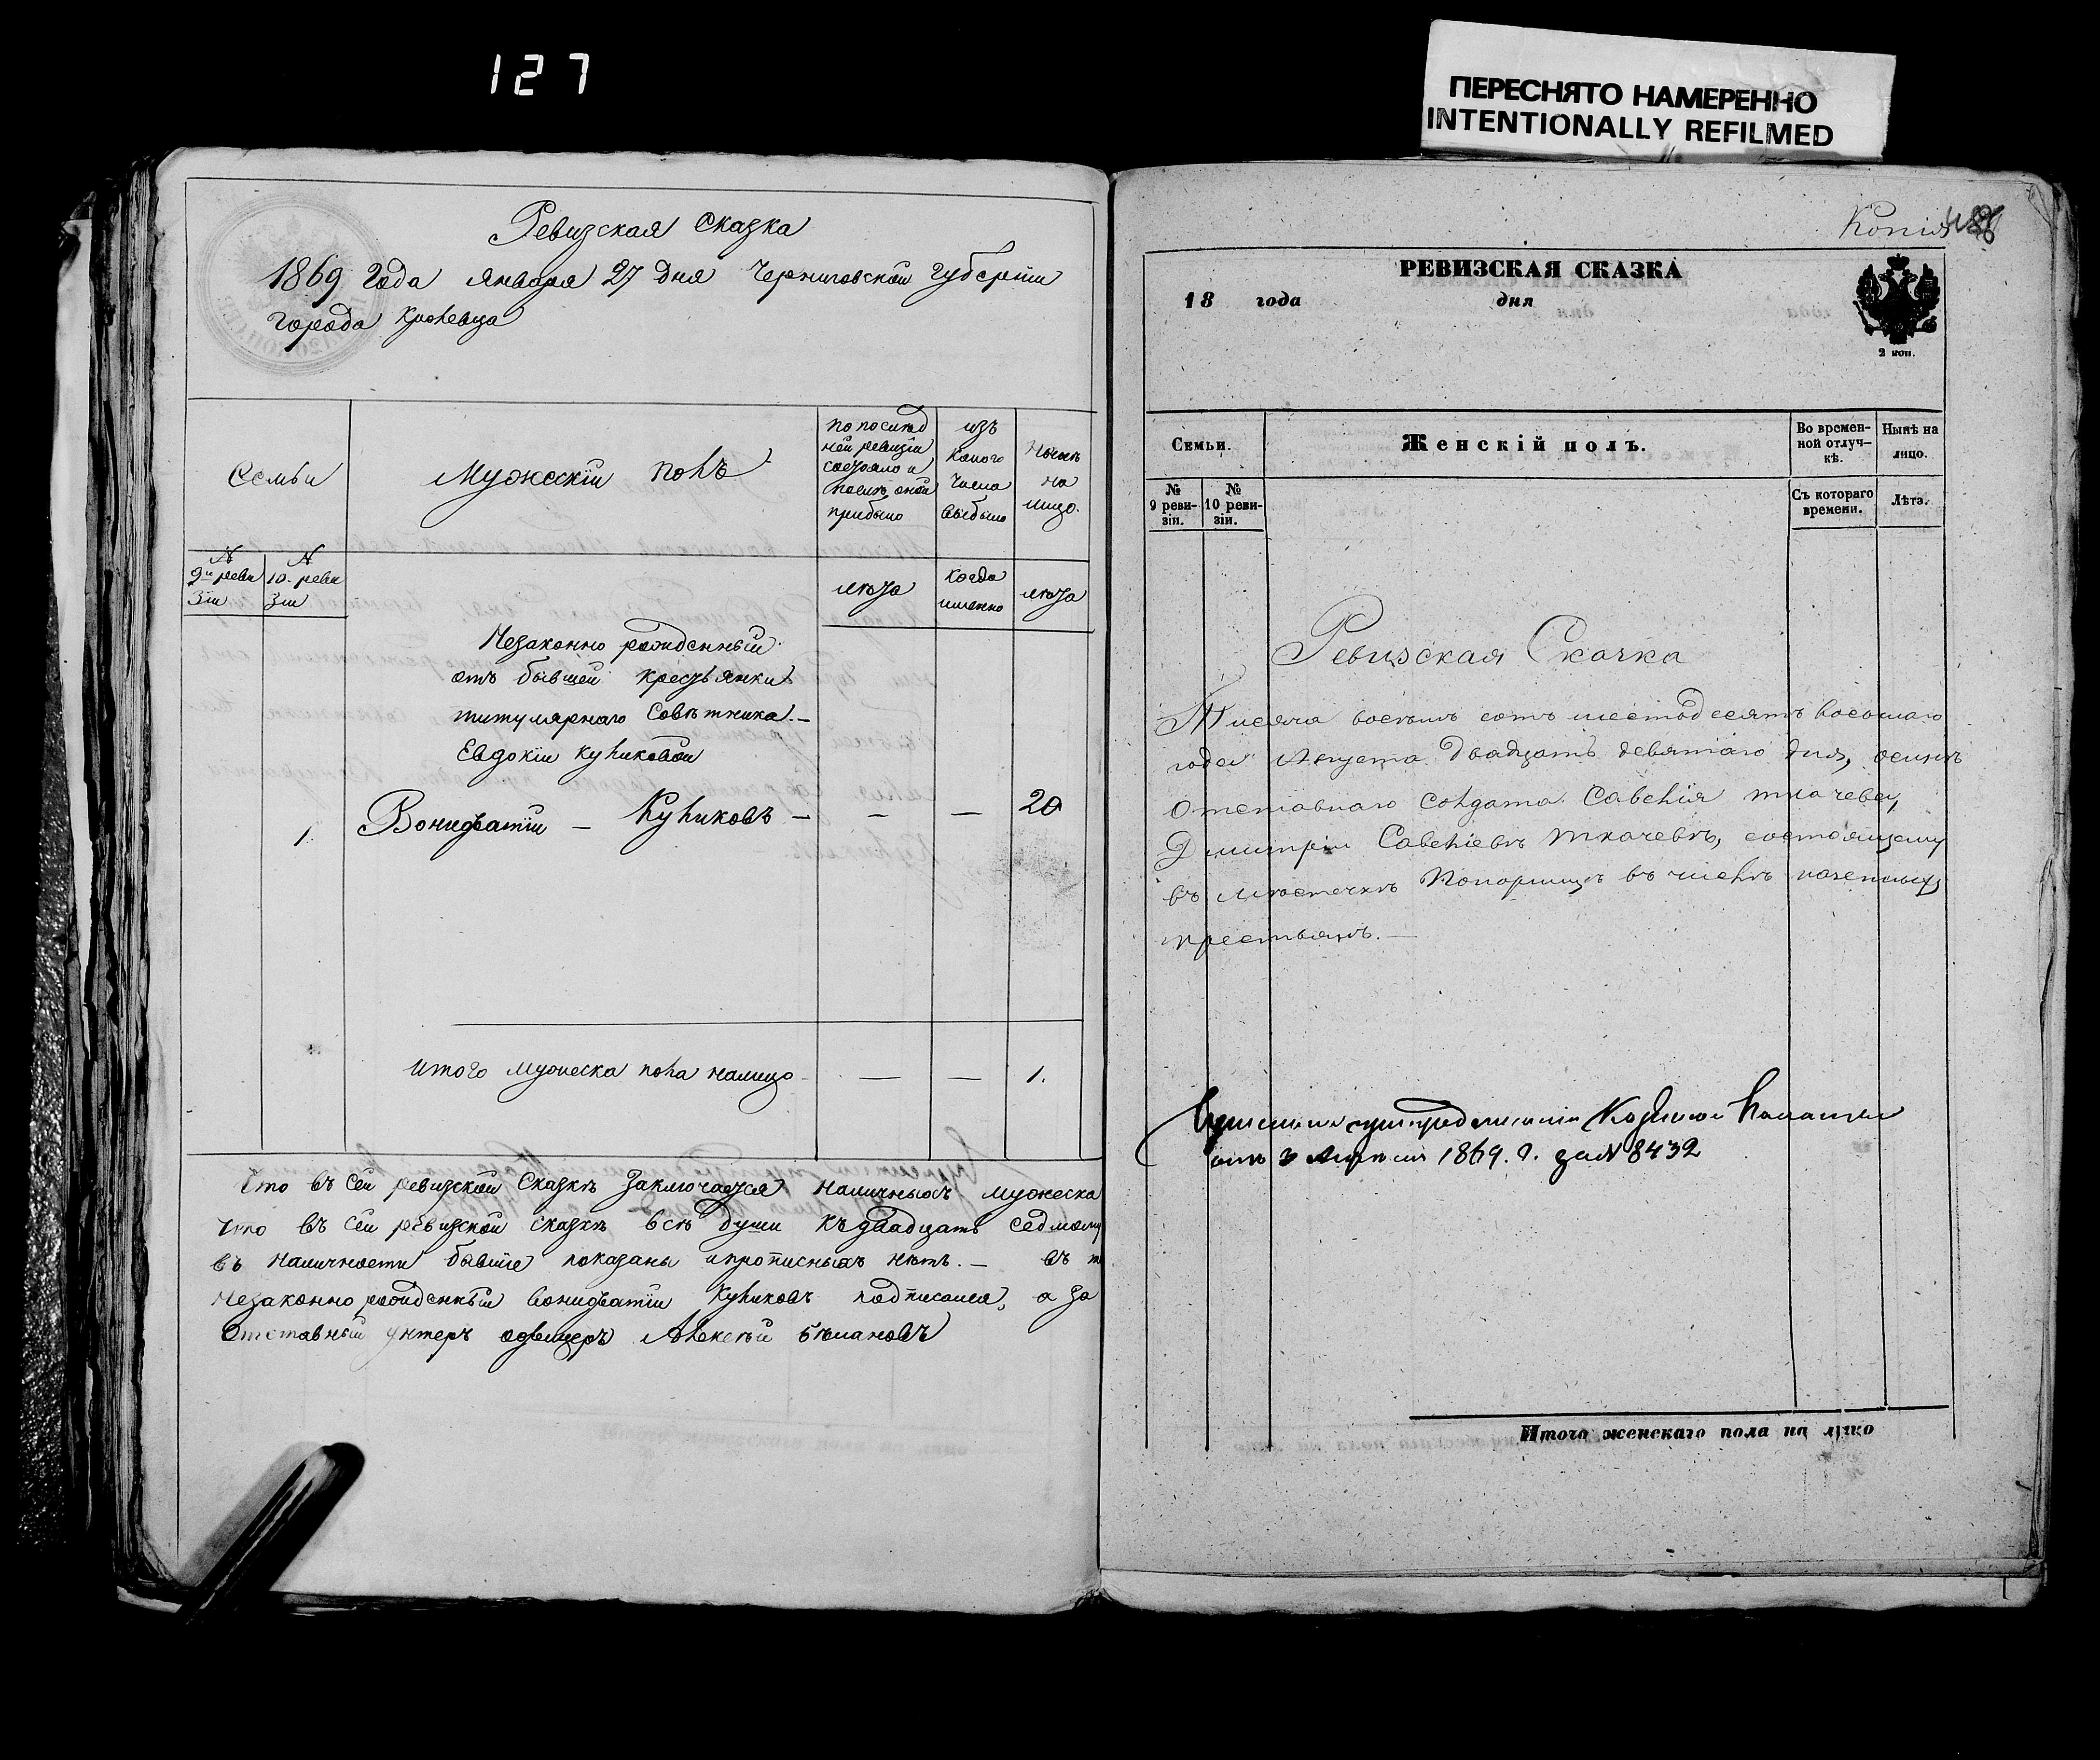 127
ПЕРЕСНЯТО НАМЕРЕННО
INTENTIONALLY REFILMED
Ревизская Сказка
1869 года января 27 дня Черниговской губерніи
города Кролевца
Семьи
Мужескій полъ
по послѣд
ней ревизіи
состояло и
послѣ оной
прибыло
изъ
какого
числа
выбыло
Нынѣ
на
лицо.
№
9й реви
зіи
№
10. реви
зіи
лѣта
когда
именно
лѣта
Незаконно рожденный
отъ бывшей крестьянки
титулярнаго Совѣтника. —
Евдокіи Куликовой
1. Вонифатій — Куликовъ — — — 20
Итого мужеска пола налицо — — — 1.
Что въ сей ревизской сказкѣ заключается наличныхъ мужеска
что въ сей ревизской сказкѣ всѣ души къ двадцать седмому
въ наличности бывшіе показаны и прописныхъ нѣтъ. — въ т
Незаконно рожденный Вонифатій Куликовъ подписался, а за
Отставный унтеръ офицеръ Алексѣй
Копія
РЕВИЗСКАЯ СКАЗКА
18 года дня
2 коп.
Семьи.
Женскій полъ.
Во времен-
ной отлуч-
кѣ.
Нынѣ на
лицо.
№
9 реви-
зіи.
№
10 реви-
зіи.
Съ котораго
времени.
Лѣта.
Ревизская Скаска
Тысяча восемь сотъ шестьдесятъ восьмаго
года Августа двадцать девятаго дня, осынѣ
отставнаго солдата Савелія Ткачева,
Дмитріи Савеліевѣ Ткачевѣ, состоящему
въ мѣстечкѣ Понорницѣ въ числѣ казенныхъ
крестьянъ. —
Казенной Палаты
1869. г. за № 8432
Итого женскаго пола на лицо